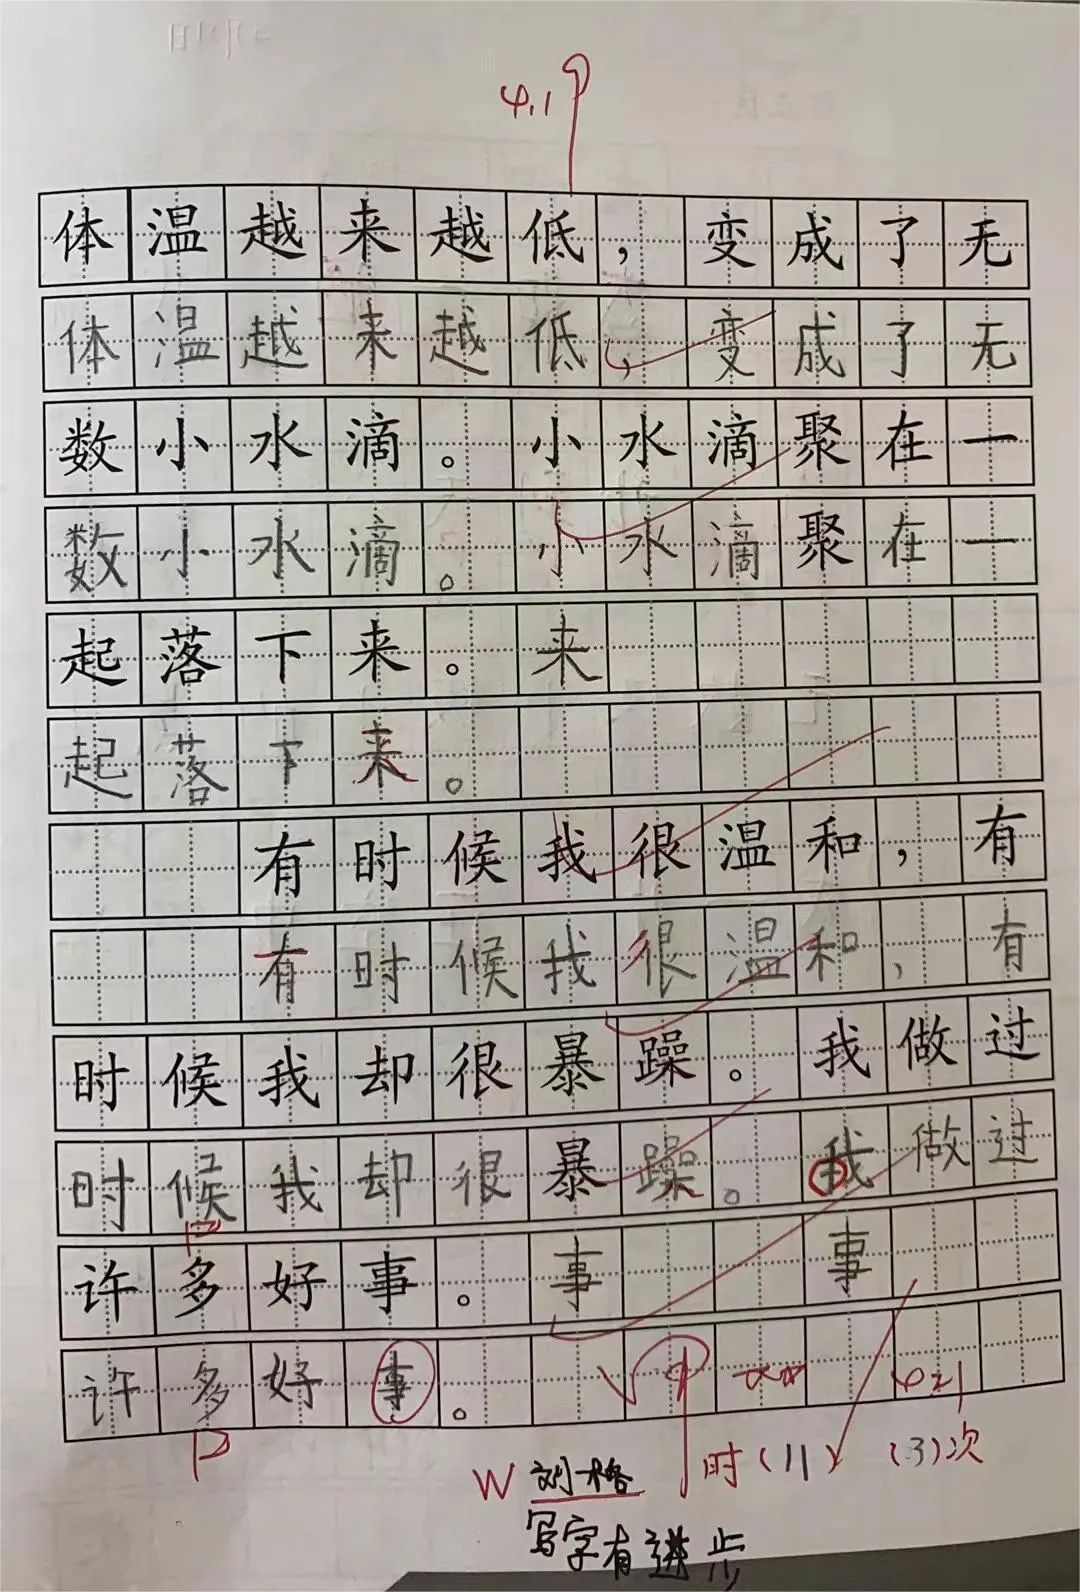 4.1
体温越来越低，变成了无
体温越来越低，变成了无
数小水滴。小水滴聚在一
数小水滴。小水滴聚在一
起落下来。来
起落下来。
有时候我很温和，有
有时候我很温和，有
时候我却很暴躁。我做过
时候我却很暴躁。我做过
许多好事。事 事
许多好事。
时(11) (3)次
W 刘一格
写字有进步